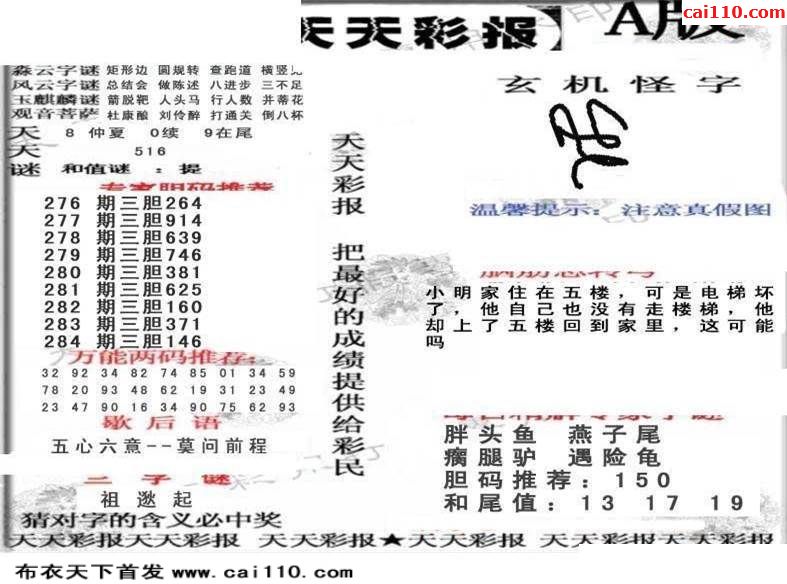 cai110.com
天天彩报】
A版
森云字谜 矩形边 圆规转 查跑道 横竖
风云字谜 总结会 做陈述 八进步 三不足
玉麒麟谜 箭脱靶 人头马 行人数 并蒂花
观音菩萨 杜康酿 刘伶醉 打通关 倒八杯
天 8 仲夏 0续 9在尾
天 516
谜 和值谜 : 提
专家胆码推荐
276 期三胆264
277 期三胆914
278 期三胆639
279 期三胆746
280 期三胆381
281 期三胆625
282 期三胆160
283 期三胆371
284 期三胆146
万能两码推荐:
32 92 34 82 74 85 01 34 59
78 20 93 48 62 19 31 23 49
23 47 90 16 34 90 75 62 93
歇后语
五心六意--莫问前程
三字谜
祖逖起
猜对字的含义必中奖
天天彩报 把最好的成绩提供给彩民
玄机怪字
温馨提示: 注意真假图
脑筋急转弯
小明家住在五楼，可是电梯坏
了，他自己也没有走楼梯，他
却上了五楼回到家里，这可能
吗
胖头鱼 燕子尾
瘸腿驴 遇险龟
胆码推荐: 150
和尾值: 13 17 19
天天彩报天天彩报 天天彩报★天天彩报 天天彩报天天彩报
布衣天下首发 www.cai110.com